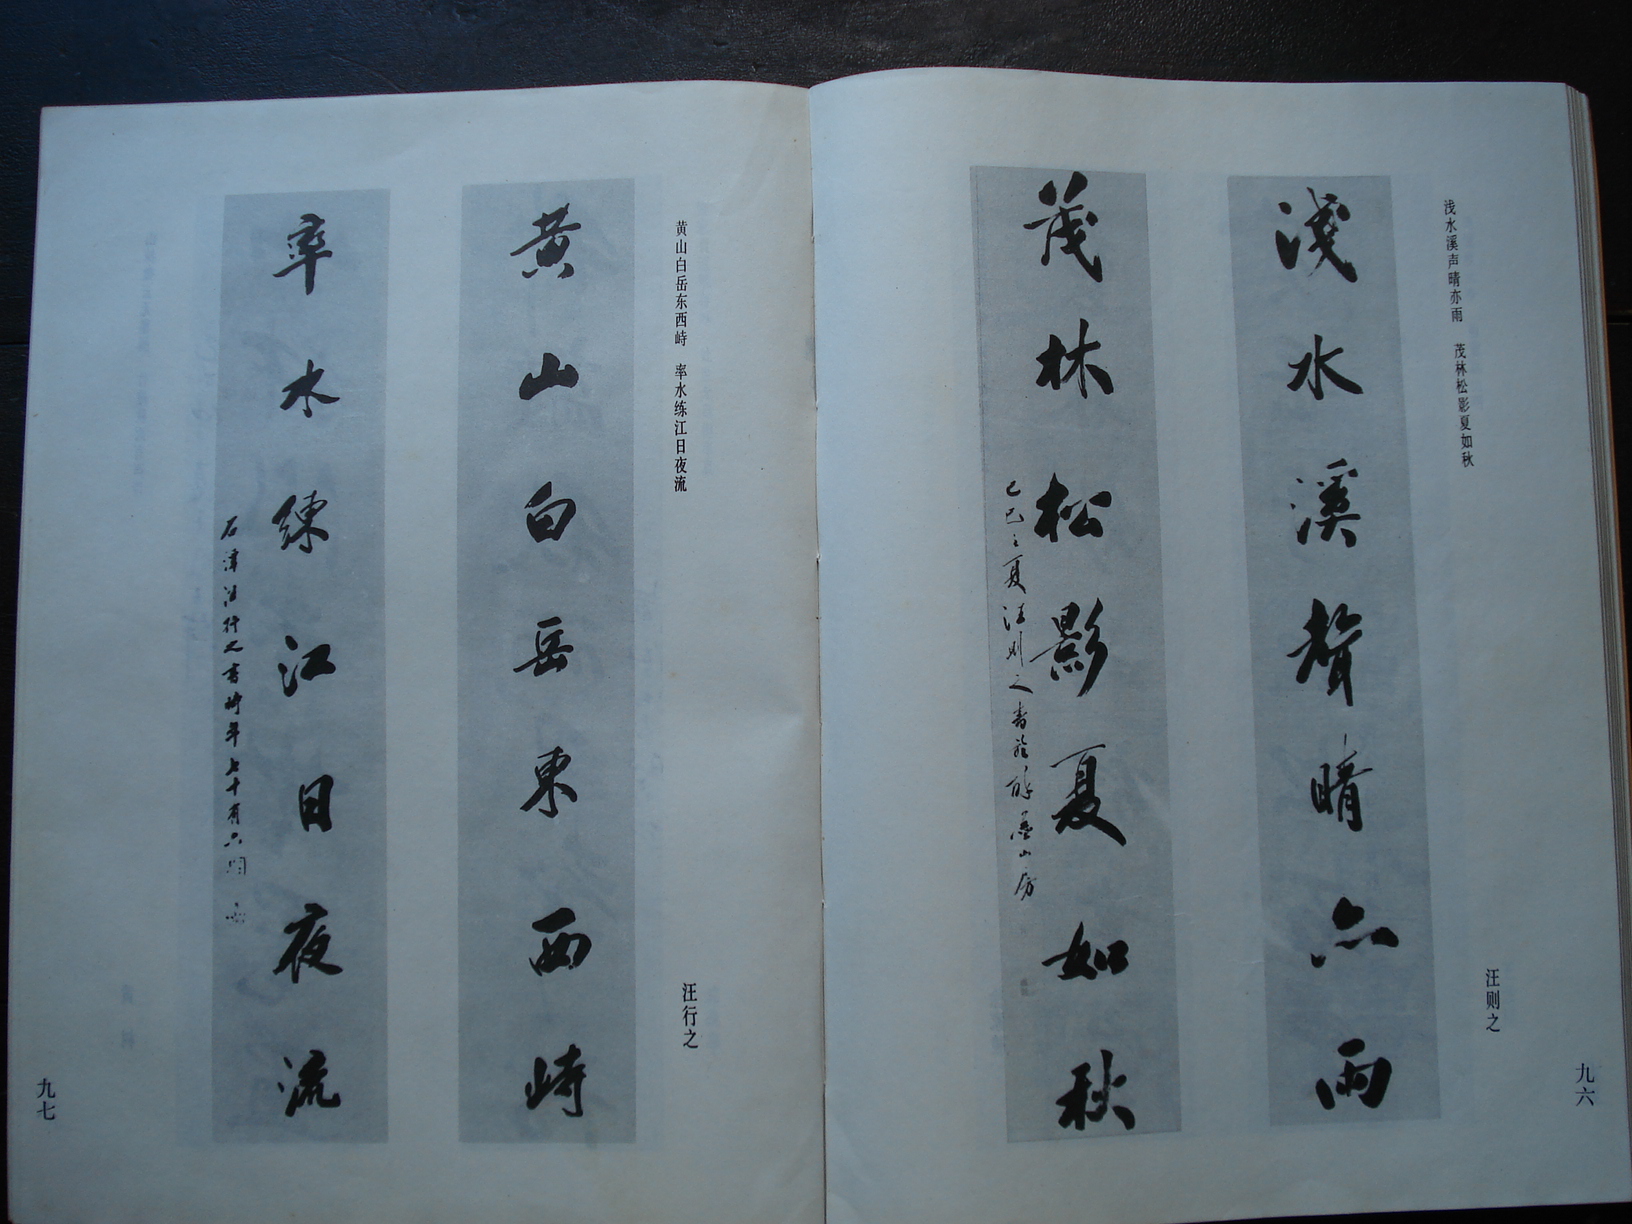 浅水溪声晴亦雨　茂林松影夏如秋
汪则之
九六
淺水溪聲晴亦雨
茂林松影夏如秋
己巳之夏汪则之書於醉墨山房
黄山白岳东西峙　率水练江日夜流
汪行之
黄山白岳東西峙
率水練江日夜流
石潭汪行之書時年七十有六
九七